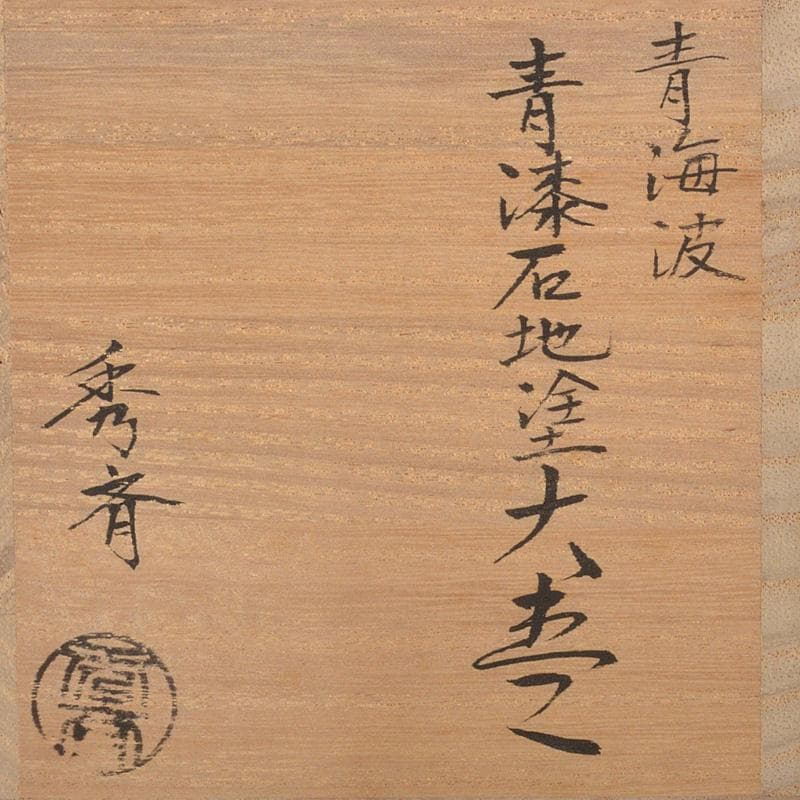 青海波
青漆石地塗大棗
秀斉